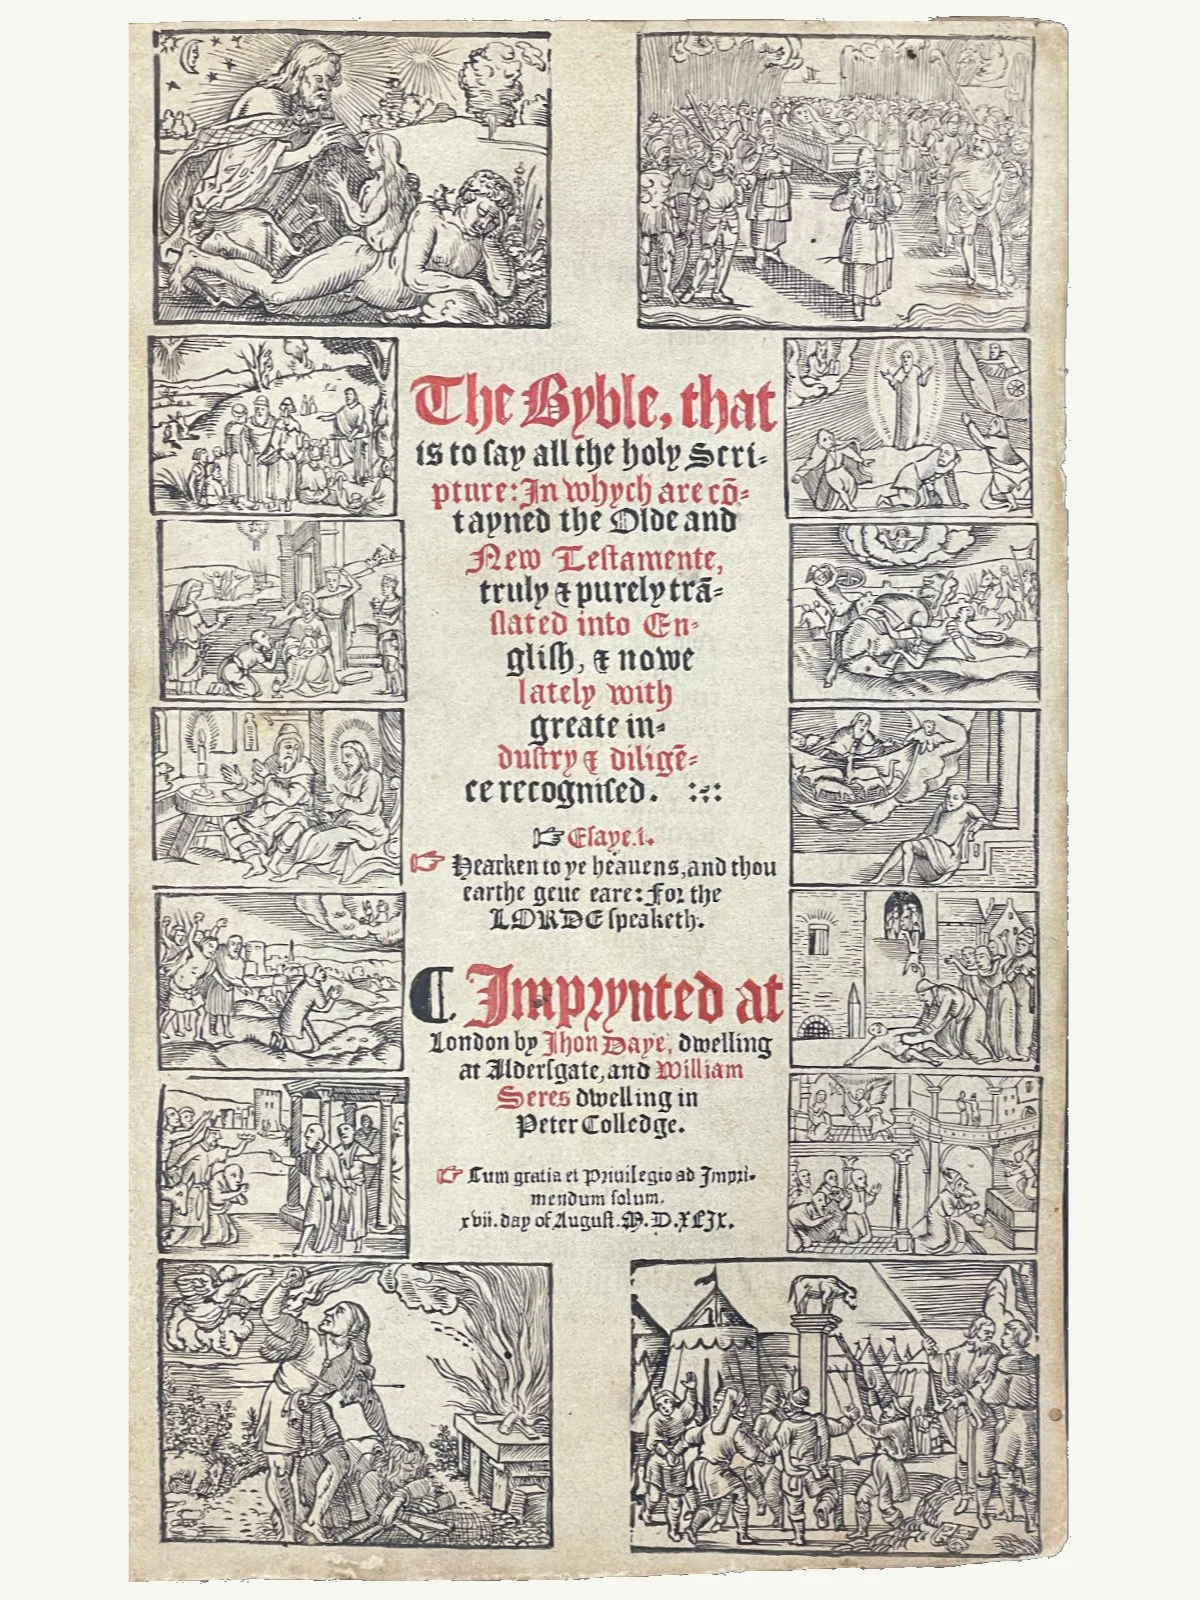 The Byble, that
is to say all the holy Scri-
pture: In whych are cō-
tayned the Olde and
New Testamente,
truly & purely trā-
slated into En-
glish, & nowe
lately with
greate in-
dustry & diligē-
ce recognised.
☞ Esaye.i.
☞ Hearken to ye heauens, and thou
earthe geue eare: For the
LORDE speaketh.
Imprynted at
London by Jhon Daye, dwelling
at Aldersgate, and William
Seres dwelling in
Peter Colledge.
☞ Cum gratia et Priuilegio ad Impri-
mendum solum.
xvii. day of August. M. D. XLIX.